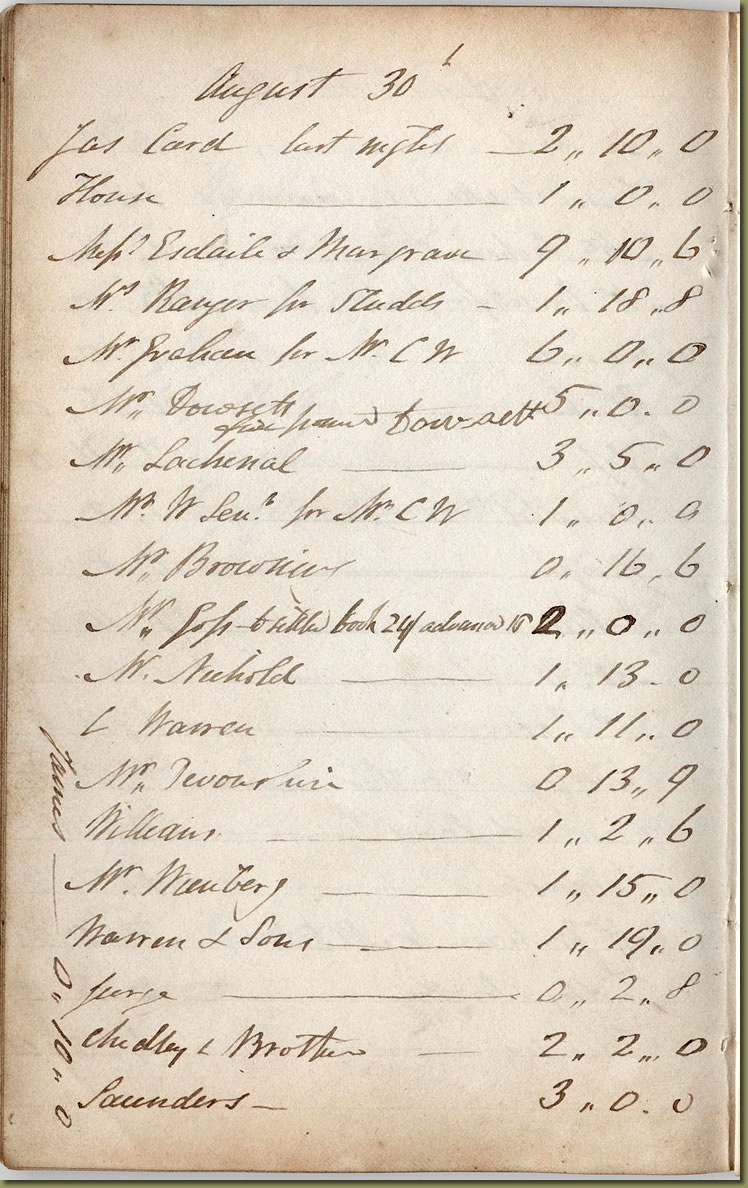 August 30
Jas Card last night — 2 „ 10 „ 0
House — 1 „ 0 „ 0
Messrs Esdaile & Margrave 9 „ 10 „ 6
Mrs Ranger for Studds – 1 „ 18 „ 8
Mr Graham for Mr C W 6 „ 0 „ 0
Mr Dowsett 5 „ 0 „ 0
five pound Dowsett
Mr Lachenal — 3 „ 5 „ 0
Mr W Senr for Mr C W 1 „ 0 „ 0
Mr Browning 0 „ 16 „ 6
Mr Goss – book 24/ advance 2 „ 0 „ 0
Mr Nickold — 1 „ 13 – 0
C Warren — 1 „ 11 „ 0
Mr Devonshire 0 13 „ 9
Williams — 1 „ 2 „ 6
Mr. — 1 „ 15 „ 0
Warren & Sons — 1 „ 19 „ 0
— 0 „ 2 „ 8
Chidley & Brother — 2 „ 2 „ 0
Saunders – 3 „ 0 – 0
James — 0 „ 10 „ 0